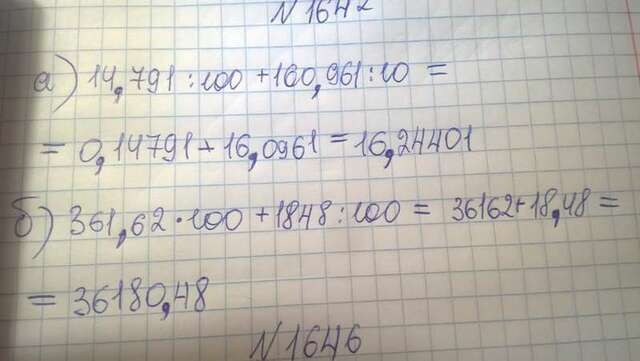 N 1642
а) 14,791 : 100 + 160,961 : 10 =
= 0,14791 + 16,0961 = 16,24401
б) 361,62 · 100 + 1848 : 100 = 36162 + 18,48 =
= 36180,48
N 1646